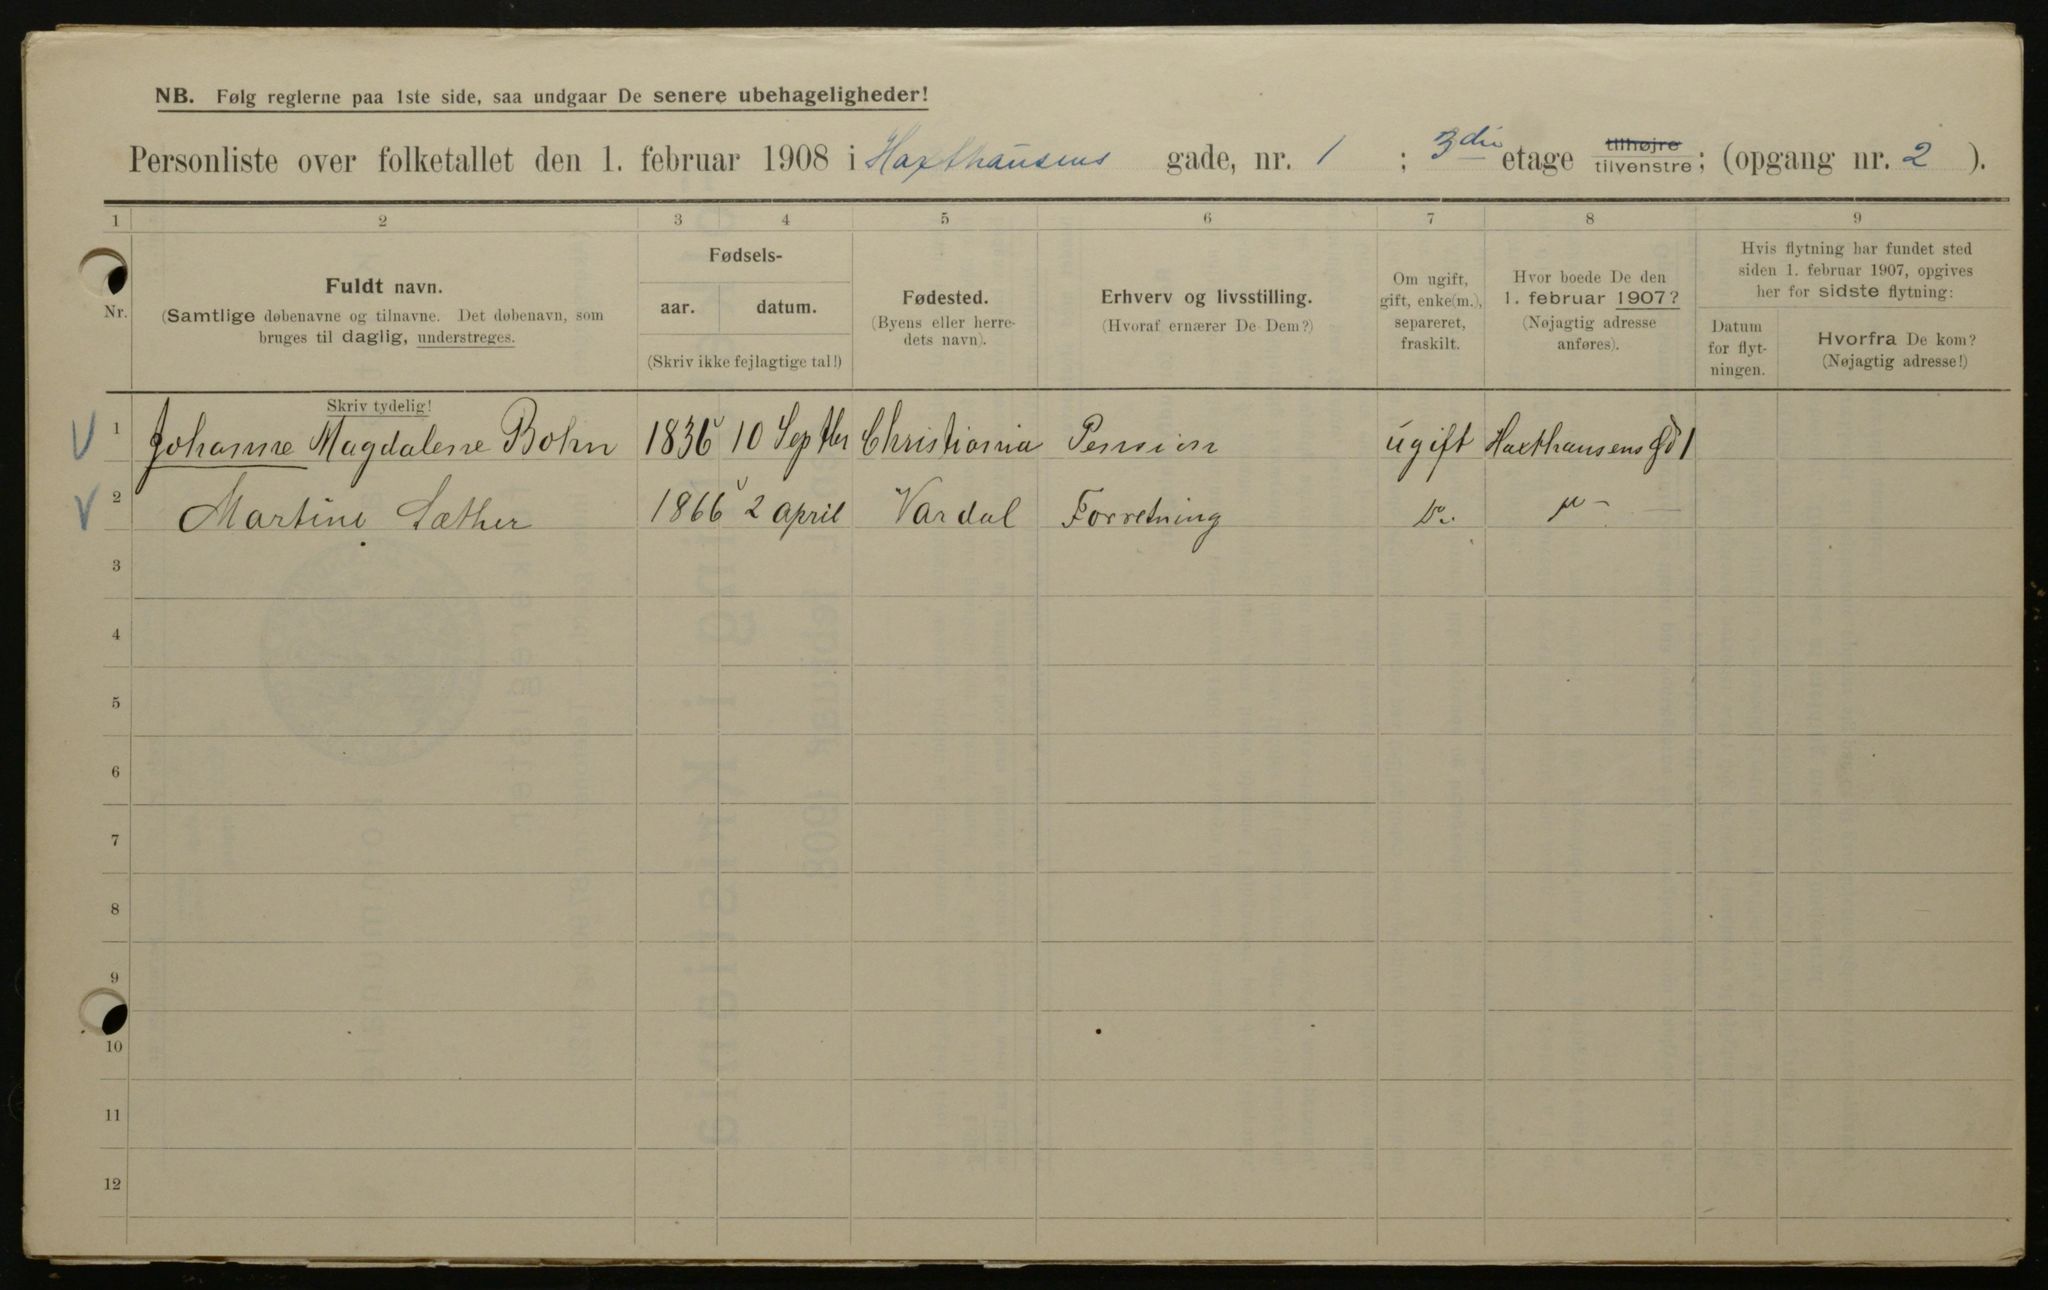 NB. Følg reglerne paa 1ste side, saa undgaar De senere ubehageligheder!
Personliste over folketallet den 1. februar 1908 i Haxthausens gade, nr. 1 ; 3die etage tilhøjre tilvenstre; (opgang nr. 2 ).
1 2 3 4 5 6 7 8 9
Nr.
Fuldt navn.
(Samtlige døbenavne og tilnavne. Det døbenavn, som
bruges til daglig, understreges.
Fødsels-
aar. datum.
(Skriv ikke fejlagtige tal!)
Fødested.
(Byens eller herre-
dets navn).
Erhverv og livsstilling.
(Hvoraf ernærer De Dem?)
Om ugift,
gift, enke(m.),
separeret,
fraskilt.
Hvor boede De den
1. februar 1907?
(Nøjagtig adresse
anføres).
Hvis flytning har fundet sted
siden 1. februar 1907, opgives
her for sidste flytning:
Datum
for flyt-
ningen.
Hvorfra De kom?
(Nøjagtig adresse!)
Skriv tydelig!
1 Johanne Magdalene Bohn 1836 10 Septbr Christiania Pension ugift Haxthausens Gd 1
2 Martine Sæther 1866 2 april Vardal Forretning Do.
3
4
5
6
7
8
9
10
11
12